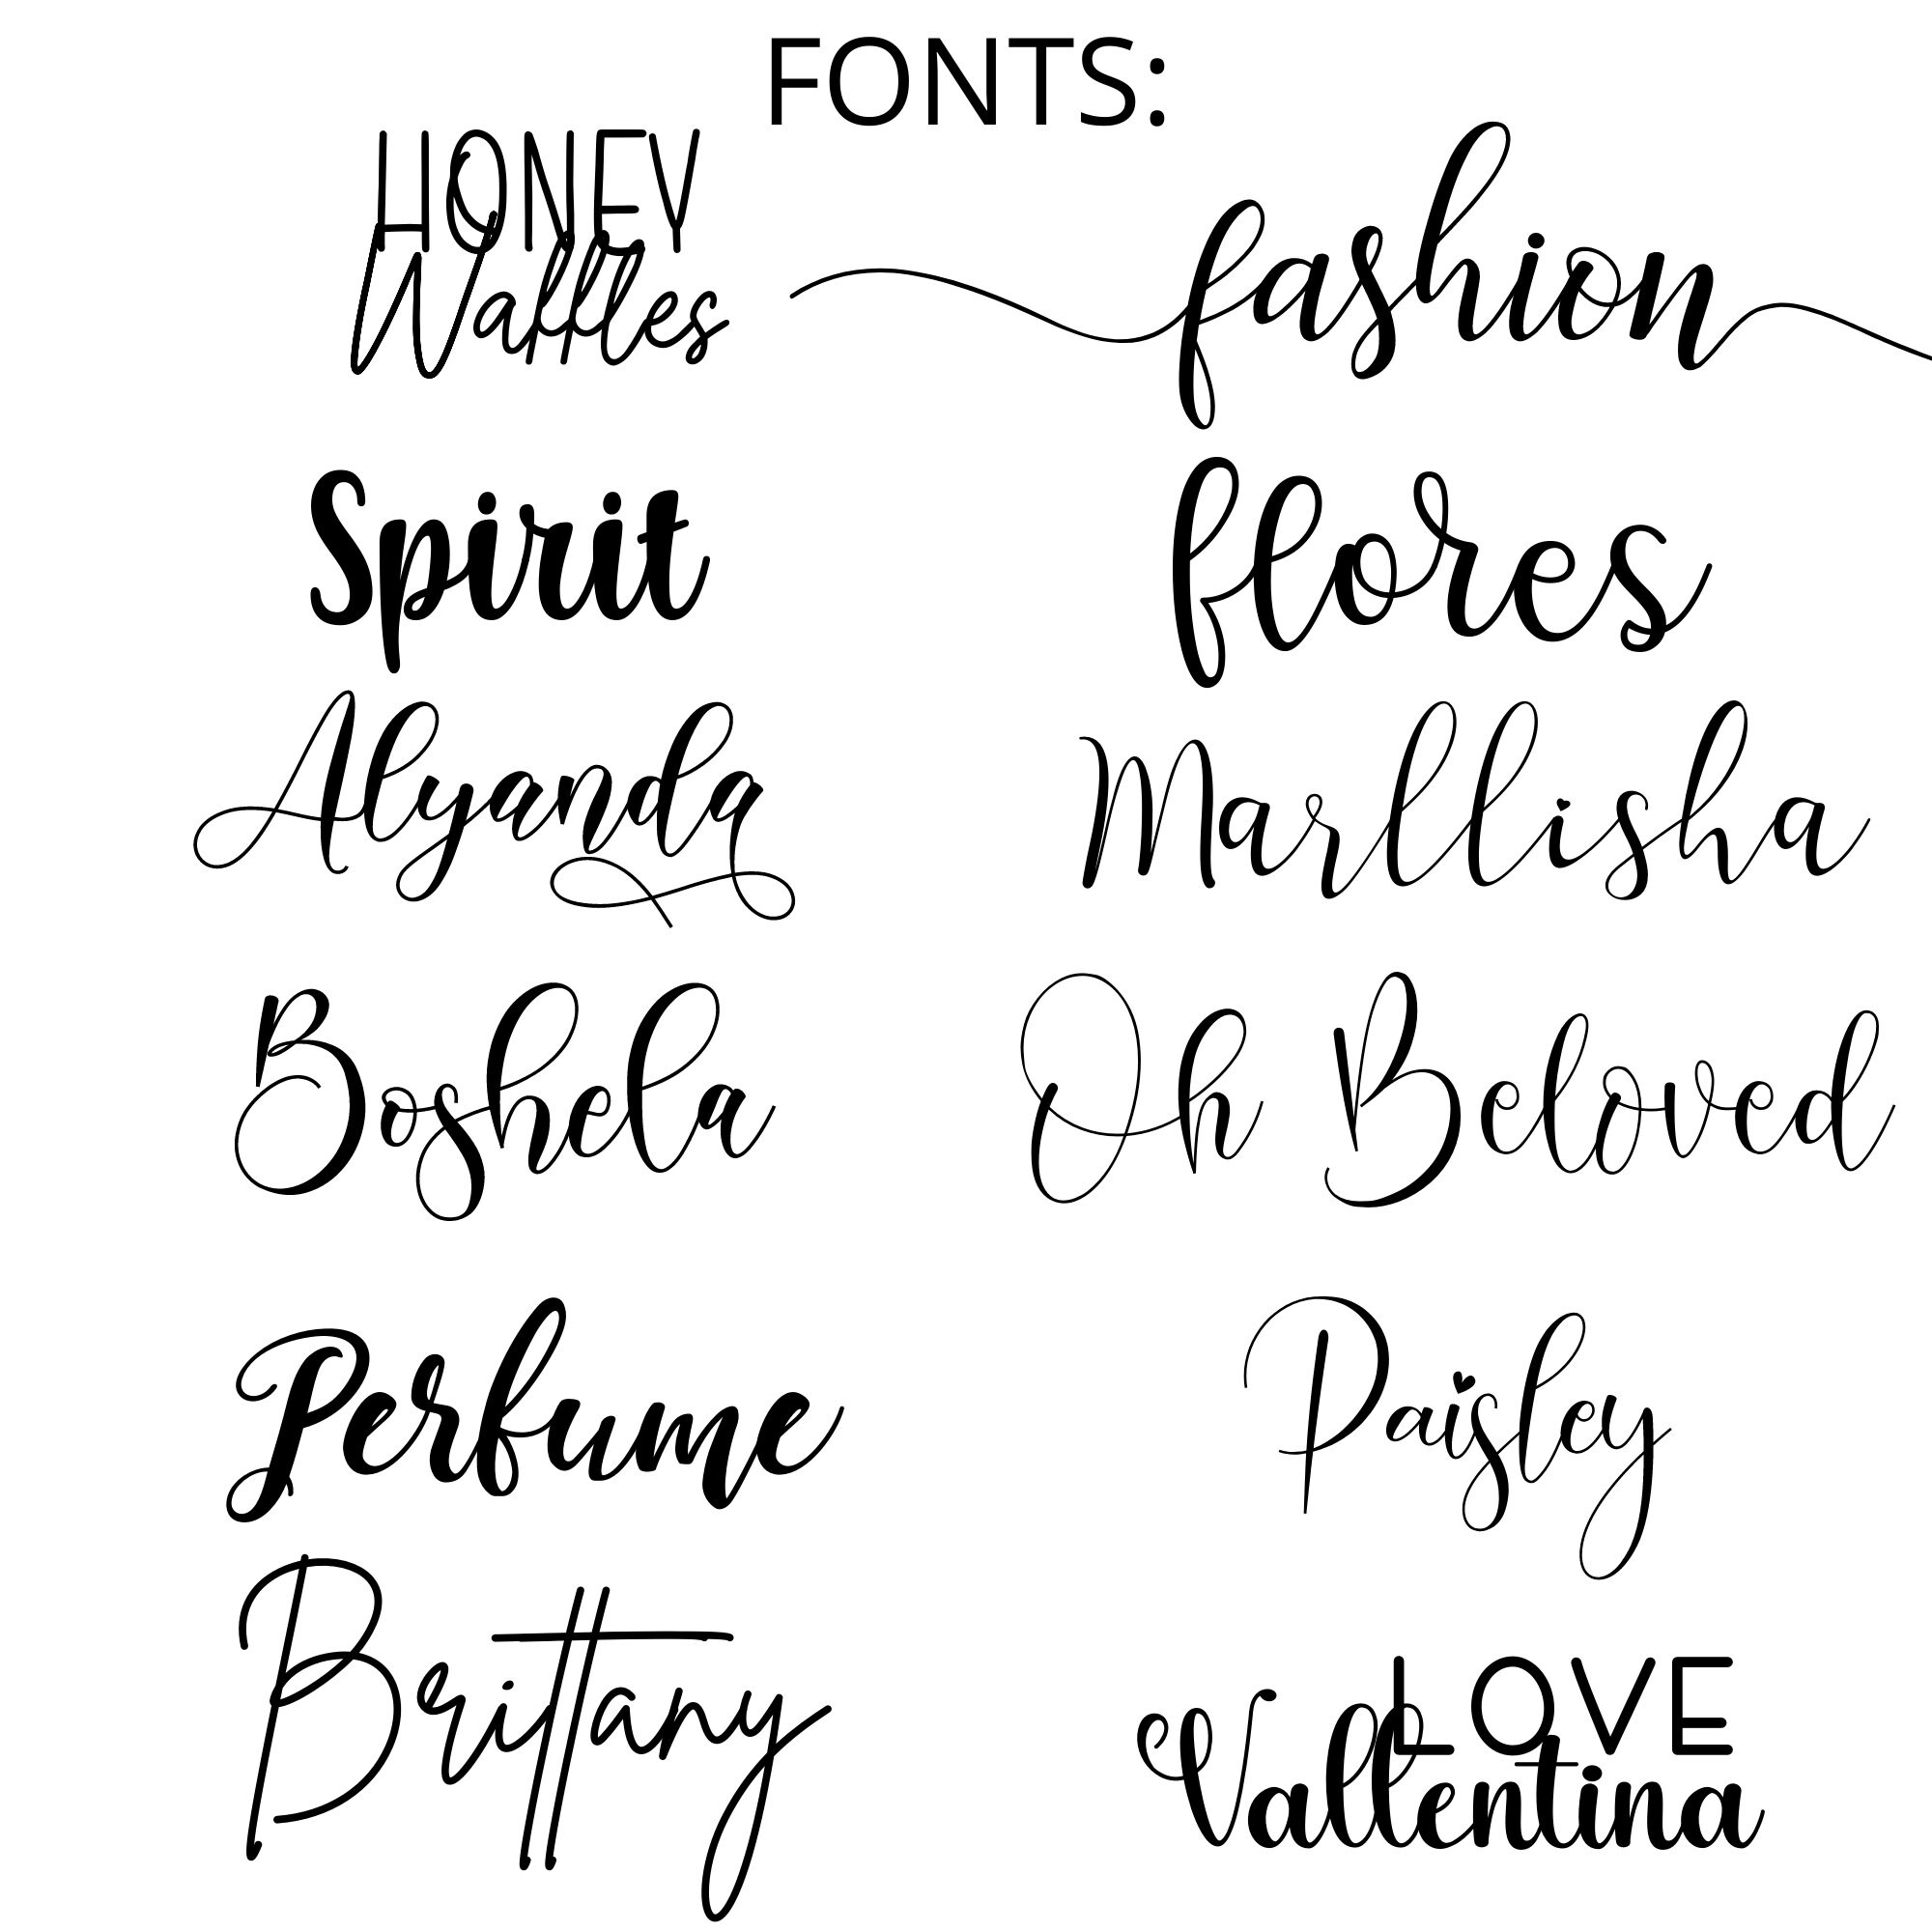 FONTS:
HONEY
Waffles
fashion
Spirit
flores
Alyanda
Marllisha
Boshela
Oh Beloved
Perfume
Paisley
Brittany
LOVE
Vallentina